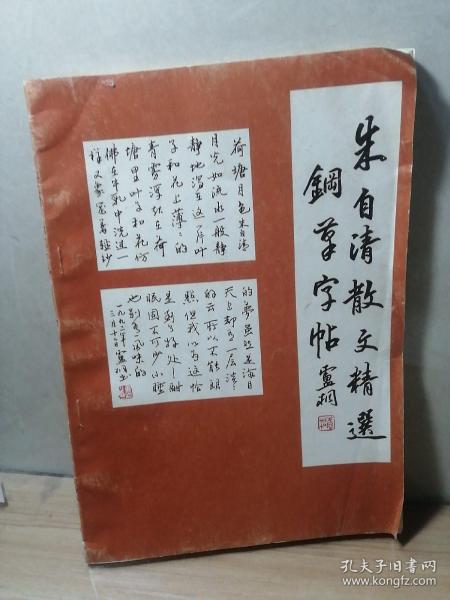 朱自清散文精選
鋼草字帖
盧桐
荷塘月色朱自清
月光如流水一般静
静地泻在这一片叶
子和花上薄々的
青雾浮起在荷
塘里叶子和花仿
佛在牛乳中洗过一
样又象笼着轻纱
的夢虽然是满月
天上却有一层淡
的云所以不能朗
照但我以为这恰
是到了好处—酣
眠固不可少小睡
也别有风味的
一九九二年
三月十日盧桐书
孔夫子旧书网
www.kongfz.com